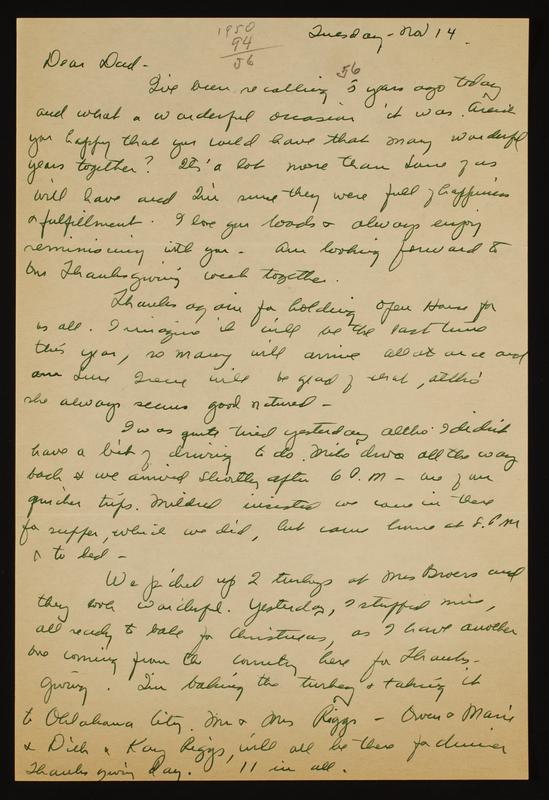 1950
94
56
Tuesday - Nov 14.
Dear Dad -
56
I've been recalling 5 years ago today
and what a wonderful occasion it was. Aren't
you happy that you could have that many wonderful
years together? It's a lot more than some of us
will have and I'm sure they were full of happiness
& fulfillment. I love you loads & always enjoy
reminiscing with you - Am looking forward to
our Thanksgiving week together.
Thanks again for holding Open House for
us all. I imagine it will be the last time
this year, so many will arrive all at once and
am sure Irene will be glad of that, altho'
she always seems good natured -
I was quite tired yesterday altho I didn't
have a bit of driving to do. Milo drove all the way
back & we arrived shortly after 6 P.M - one of our
quicker trips. Mildred insisted we come in there
for supper, which we did, but came home at 8. P.M
& to bed -
We picked up 2 turkeys at Mrs Browers and
they look wonderful. Yesterday, I stuffed mine,
all ready to bake for Christmas, as I have another
one coming from the country here for Thanks-
giving. I'm baking the turkey & taking it
to Oklahoma City. Mr & Mrs Riggs - Owen & Marie
& Dick & Kay Riggs, will all be there for dinner
Thanksgiving Day. 11 in all.